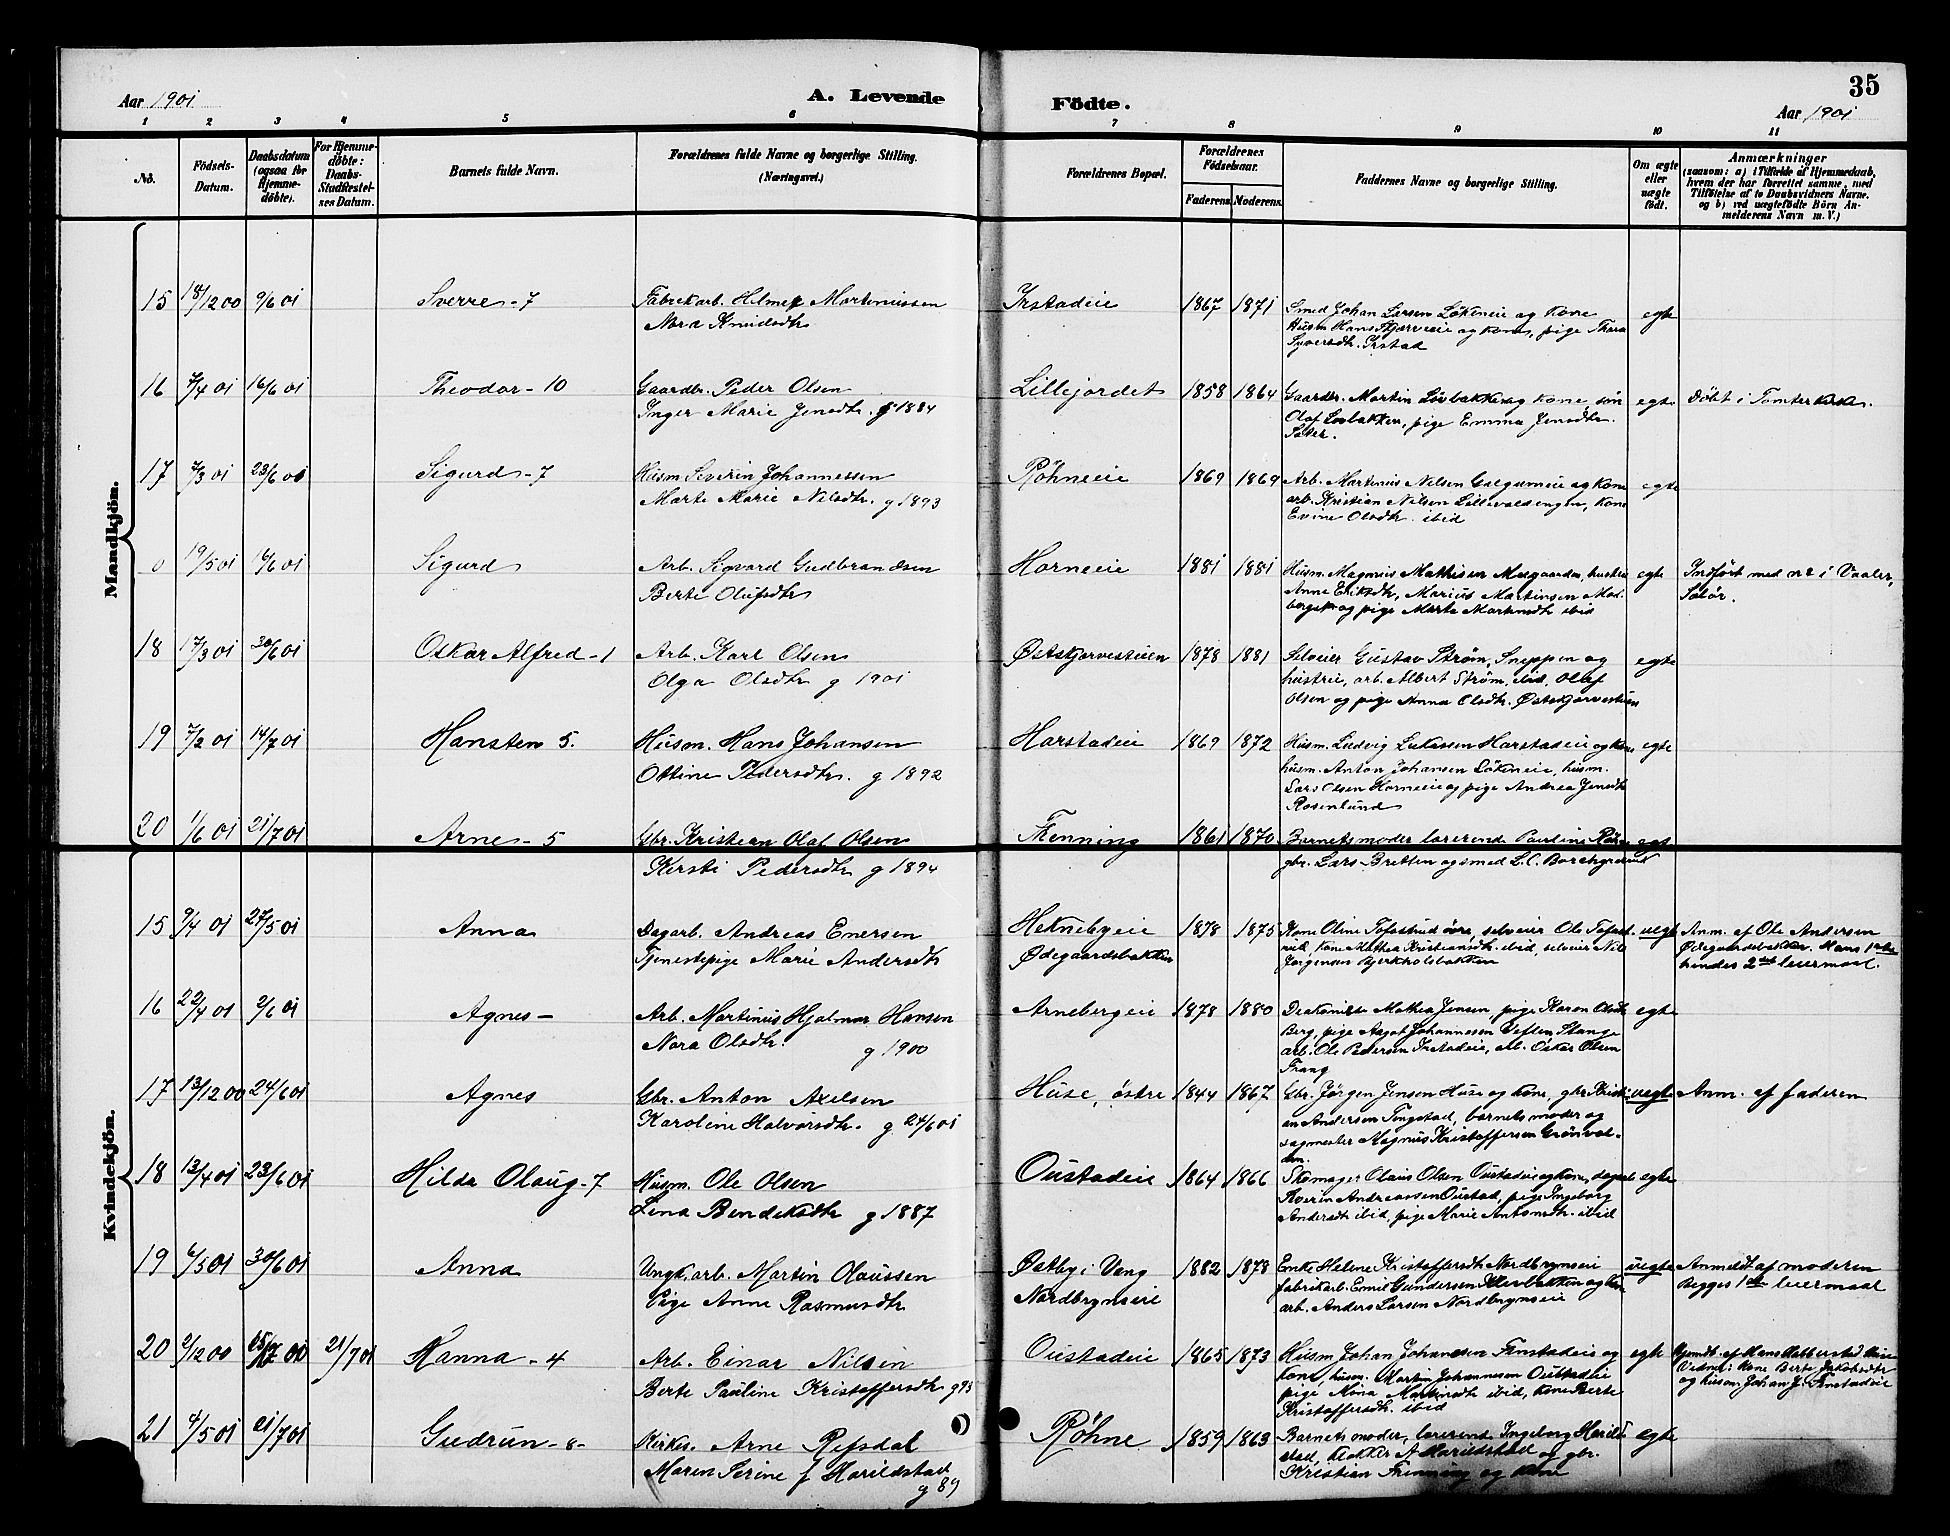 35
Aar 1901
A. Levende
Födte.
Aar 1901
1 2 3 4 5 6 7 8 9 10 11
No.
Födsels-Datum.
Daabsdatum (ogsaa for Hjemme-döbte).
For Hjemme-döbte: Daabs-Stadfæstel-ses Datum.
Barnets fulde Navn.
Forældrenes fulde Navne og borgerlige Stilling.
(Næringsvei.)
Forældrenes Bopæl.
Forældrenes Födselsaar.
Faderens Moderens
Faddernes Navne og borgerlige Stilling.
Om ægte eller uægte födt.
Anmærkninger
(saasom: a) i Tilfælde af Hjemmedaab,
hvem der har forrettet samme, med
Tilföielse af to Daabsvidners Navne.
og b) ved uægtefödte Börn An-
melderens Navn m. V.)
Mandkjön.
15 18/12 00 9/6 01 Sverre - 7 Fabrikarb. Hilmer Martiniussen Irstadeie 1867 1871 Smed Johan Larsen Lökeneie og Kone egte
Nora Knudsdtr Husm Hans Kjærveeie og kone, pige Thora
Syversdtr. Irstad
16 7/4 01 16/6 01 Theodor - 10 Gaardbr. Peder Olsen Lillejordet 1858 1864 Gaardbr. Martin Livbakken og kone sön egte Döbt i Tomter kirke.
Inger Marie Jensdtr. g 1884 Olaf Livbakken, pige Emma Jensdtr
Sæter.
17 7/3 01 23/6 01 Sigurd - 7 Husm Severin Johannessen Röhneeie 1869 1869 Arb. Martinius Nilsen Galgumeie og Kone egte
Marte Marie Nilsdtr. g 1893 arb. Kristian Nilsen Lillevaldengen, Kone
Evine Olsdtr. ibid
0 19/5 01 16/6 01 Sigurd Arb. Sigvard Gudbrandsen Horneeie 1881 1881 Husm. Magnus Mathisen Melgaarden, hustru egte Indfört med no i Vaaler,
Berte Olufsdtr Anne Eriksdtr, Marius Martinsen Mel- Solör.
og pige Marte Martinsdtr ibid
18 17/3 01 30/6 01 Oskar Alfred - 1 Arb. Karl Olsen Østskjørvestuen 1878 1881 Selveier Gustav Ström, Sneppen og egte
Olga Olsdtr g 1901 hustru, arb. Albert Ström ibid, Olaf
Olsen og pige Anna Olsdtr. Østskjørvestuen
19 7/2 01 14/7 01 Hansten 5. Husm. Hans Johansen Harstadeie 1869 1872 Husm. Ludvig Lukassen Harstadeie og Kone egte
Ottine Pedersdtr. g 1892 husm. Anton Johansen Lökeneie, husm.
Lars Olsen Horneeie og pige Andrea Jensdtr
Rosenlund
20 1/6 01 21/7 01 Arne - 5 Gbr. Kristian Olaf Olsen Frenning 1861 1870 Barnets moder lærerinde Pauline egte
Kersti Pedersdtr g 1894 gbr. Lars Bretten og smed L.C. Borchgrevink
Kvindekjön.
15 9/4 01 27/5 01 Anna Dagarb. Andreas Enersen Heknebyeie 1878 1875 Kone Oline Tofastrud övre, selveier Ole Tofast- uegte Anm. af Ole Andersen
Tjenestepige Marie Andersdtr Ødegaardsbakken rud, kone Mathea Kristiansdtr ibid, selveier Nils Ødegaardsbakken. Hans 1ste
Jörgensen Bjerkholsbakken hendes 2det leiermaal.
16 22/4 01 2/6 01 Agnes - Arb. Martinius Hjalmar Hansen Arnebergeie 1878 1880 Diakonisse Mathea Jensen, pige Karen Olsdtr egte
Nora Olsdtr. g 1900 Berg, pige Aagot Johannessen Veflen Stange
arb. Ole Pedersen Irstadeie, arb. Oskar Olsen
Frang
17 13/12 00 24/6 01 Agnes Gbr. Anton Axelsen Huse, östre 1844 1867 Gbr. Jörgen Jensen Huse og kone, gbr Kristi- uegte Anm. af faderen
Karoline Halvorsdtr. g. 24/6 01 an Andersen Tingstad, barnets moder og
sagmester Magnus Kristoffersen Grönvol-
den.
18 13/4 01 23/6 01 Hilda Olaug - 7 Husm. Ole Olsen Oustadeie 1864 1866 Skomager Olaus Olsen Oustadeie og kone, dagarb. egte
Lina Bendiksdtr g 1887 Kverin Andreassen Oustad, pige Ingeborg
Andersdtr ibid, pige Marie Antonsdtr. ibid
19 6/5 01 30/6 01 Anna Ungk. arb. Martin Olaussen Østby i Vang 1882 1878 Enke Helene Kristoffersdtr Nordbrynseie uegte Anmeldt af moderen
Pige Anne Rasmusdtr Nordbrynseie fabrikarb. Emil Gundersen og kone Begges 1ste leiermaal
arb. Anders Larsen Nordbrynseie
20 2/12 00 21/7 01 Hanna - 4 Arb. Einar Nilsen Oustadeie 1865 1873 Husm Johan Johansen Finstadeie og egte
Berte Pauline Kristoffersdtr g 93 kone, husm. Martin Johannesen Oustadeie Vidner: Kone Berte Jakobsdtr
pige Nina Martinsdtr ibid, kone Berte og husm. Johan J. Finstadeie
Kristoffersdtr. ibid
21 4/5 01 21/7 01 Gudrun - 8 - Kirkes. Arne Refsdal Röhne 1859 1863 Barnets moder, lærerinde Ingeborg Harild- egte
Maren Serine f Harildstad stad, klokker A Harildstad og gbr.
g 89 Kristian Frenning og kone